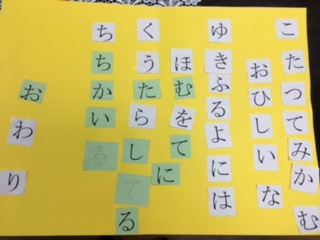 こたつてみかむ
おひしいな
ゆきふるよには
ほむをてに
くうたらしてる
ちちかいる
おわり